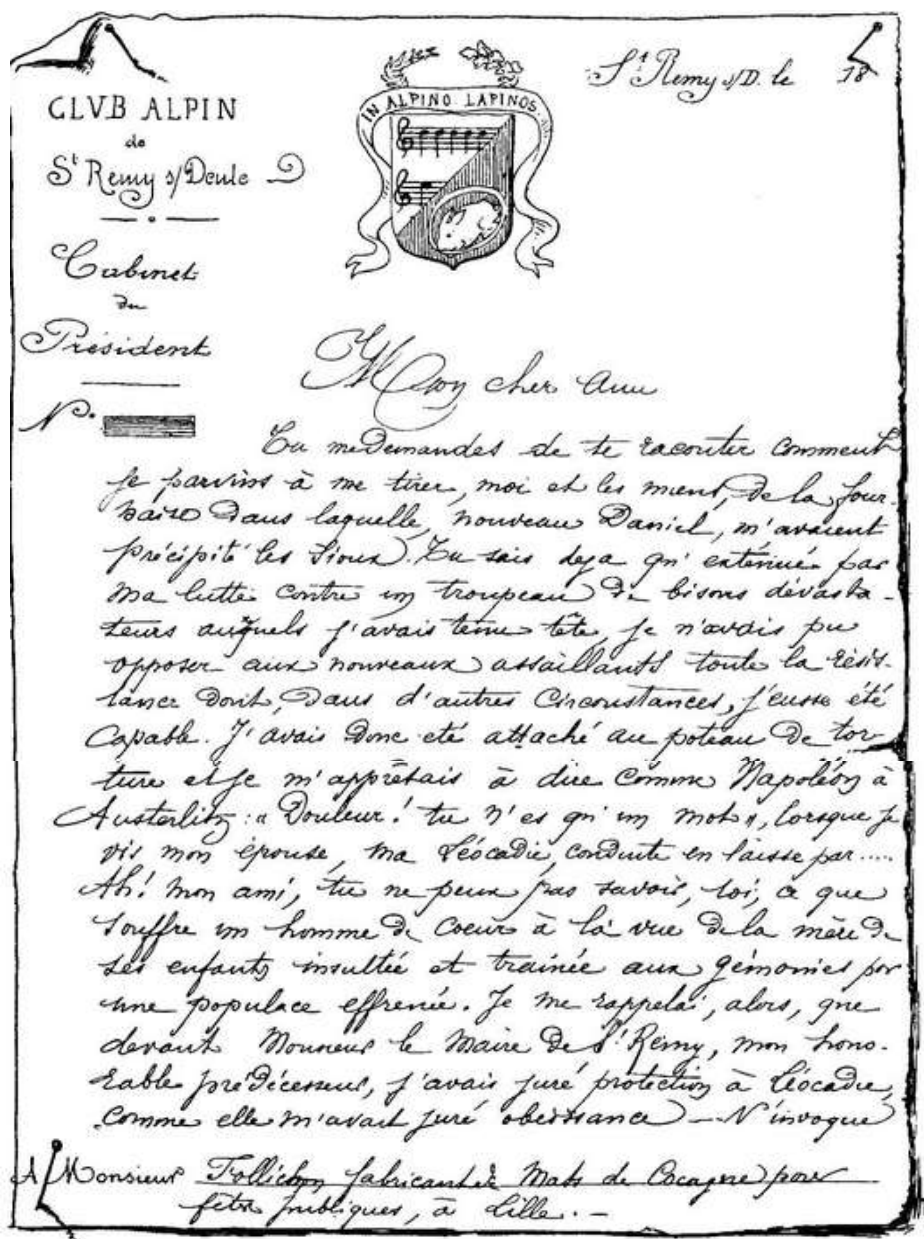 CLVB ALPIN
de
St Remy s/Deule
Cabinet
du
Président
No.
IN ALPINO LAPINOS
St Remy s/D. le 18
Mon cher Ami
Tu me demandes de te raconter comment
je parvins à me tirer, moi et les miens, de la four-
naise dans laquelle, nouveau Daniel, m'avaient
précipité les Sioux. Tu sais deja qu'exténué par
ma lutte contre un troupeau de bisons dévasta-
teurs auxquels j'avais tenu tête, je n'avais pu
opposer aux nouveaux assaillants toute la résis-
tance dont, dans d'autres circonstances, j'eusse été
capable. J'avais donc été attaché au poteau de tor-
ture et je m'apprêtais à dire comme Napoléon à
Austerlitz : « Douleur ! tu n'es qu'un mot », lorsque je
vis mon épouse, ma Léocadie, conduite en laisse par....
Ah! mon ami, tu ne peux pas savoir, toi, ce que
souffre un homme de coeur à la vue de la mère de
ses enfants insultée et trainée aux gémonies par
une populace effrenée. Je me rappelai, alors, que
devant Monsieur le Maire de St Remy, mon hono-
rable prédécesseur, j'avais juré protection à Léocadie,
comme elle m'avait juré obeissance — N'invoque
A Monsieur Follichon fabricant de Mats de Cocagne pour
fêtes publiques, à Lille. —